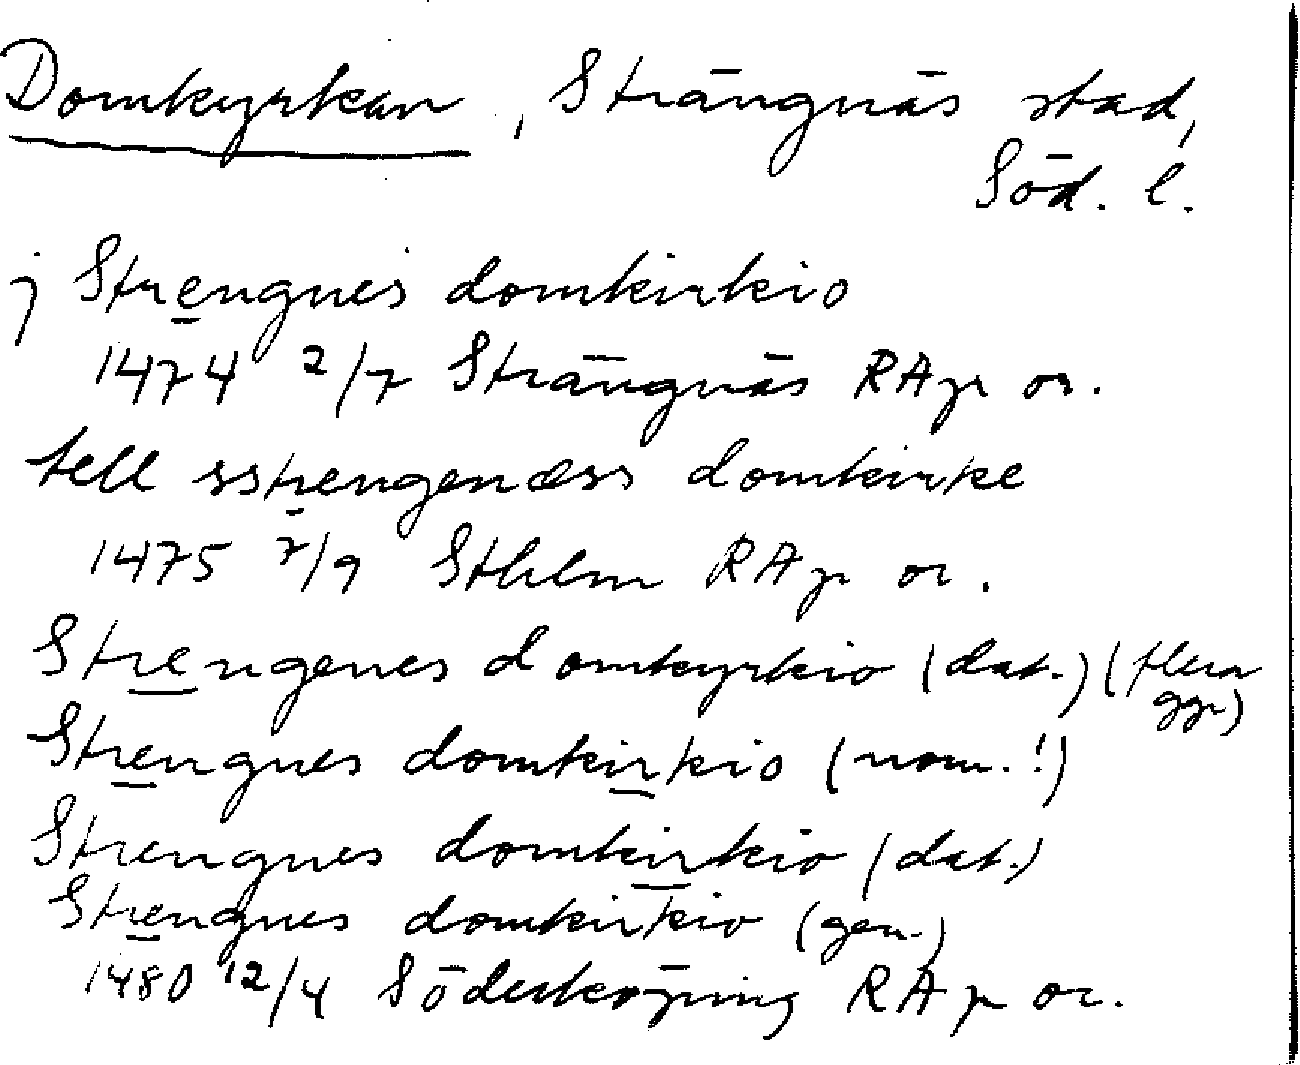 Domkyrkan, Strängnäs stad,
Söd. l.
j Strengnes domkirkio
1474 2/7 Strängnäs RAp or.
tell sstrengenæss domkirke
1475 7/9 Sthlm RAp or.
Strengenes domkyrkio (dat.) (flera
ggr)
Strengnes domkirkio (nom.!)
Strengnes domkirkio (dat.)
Strengnes domkirkio (gen.)
1480 12/4 Söderköping RAp or.